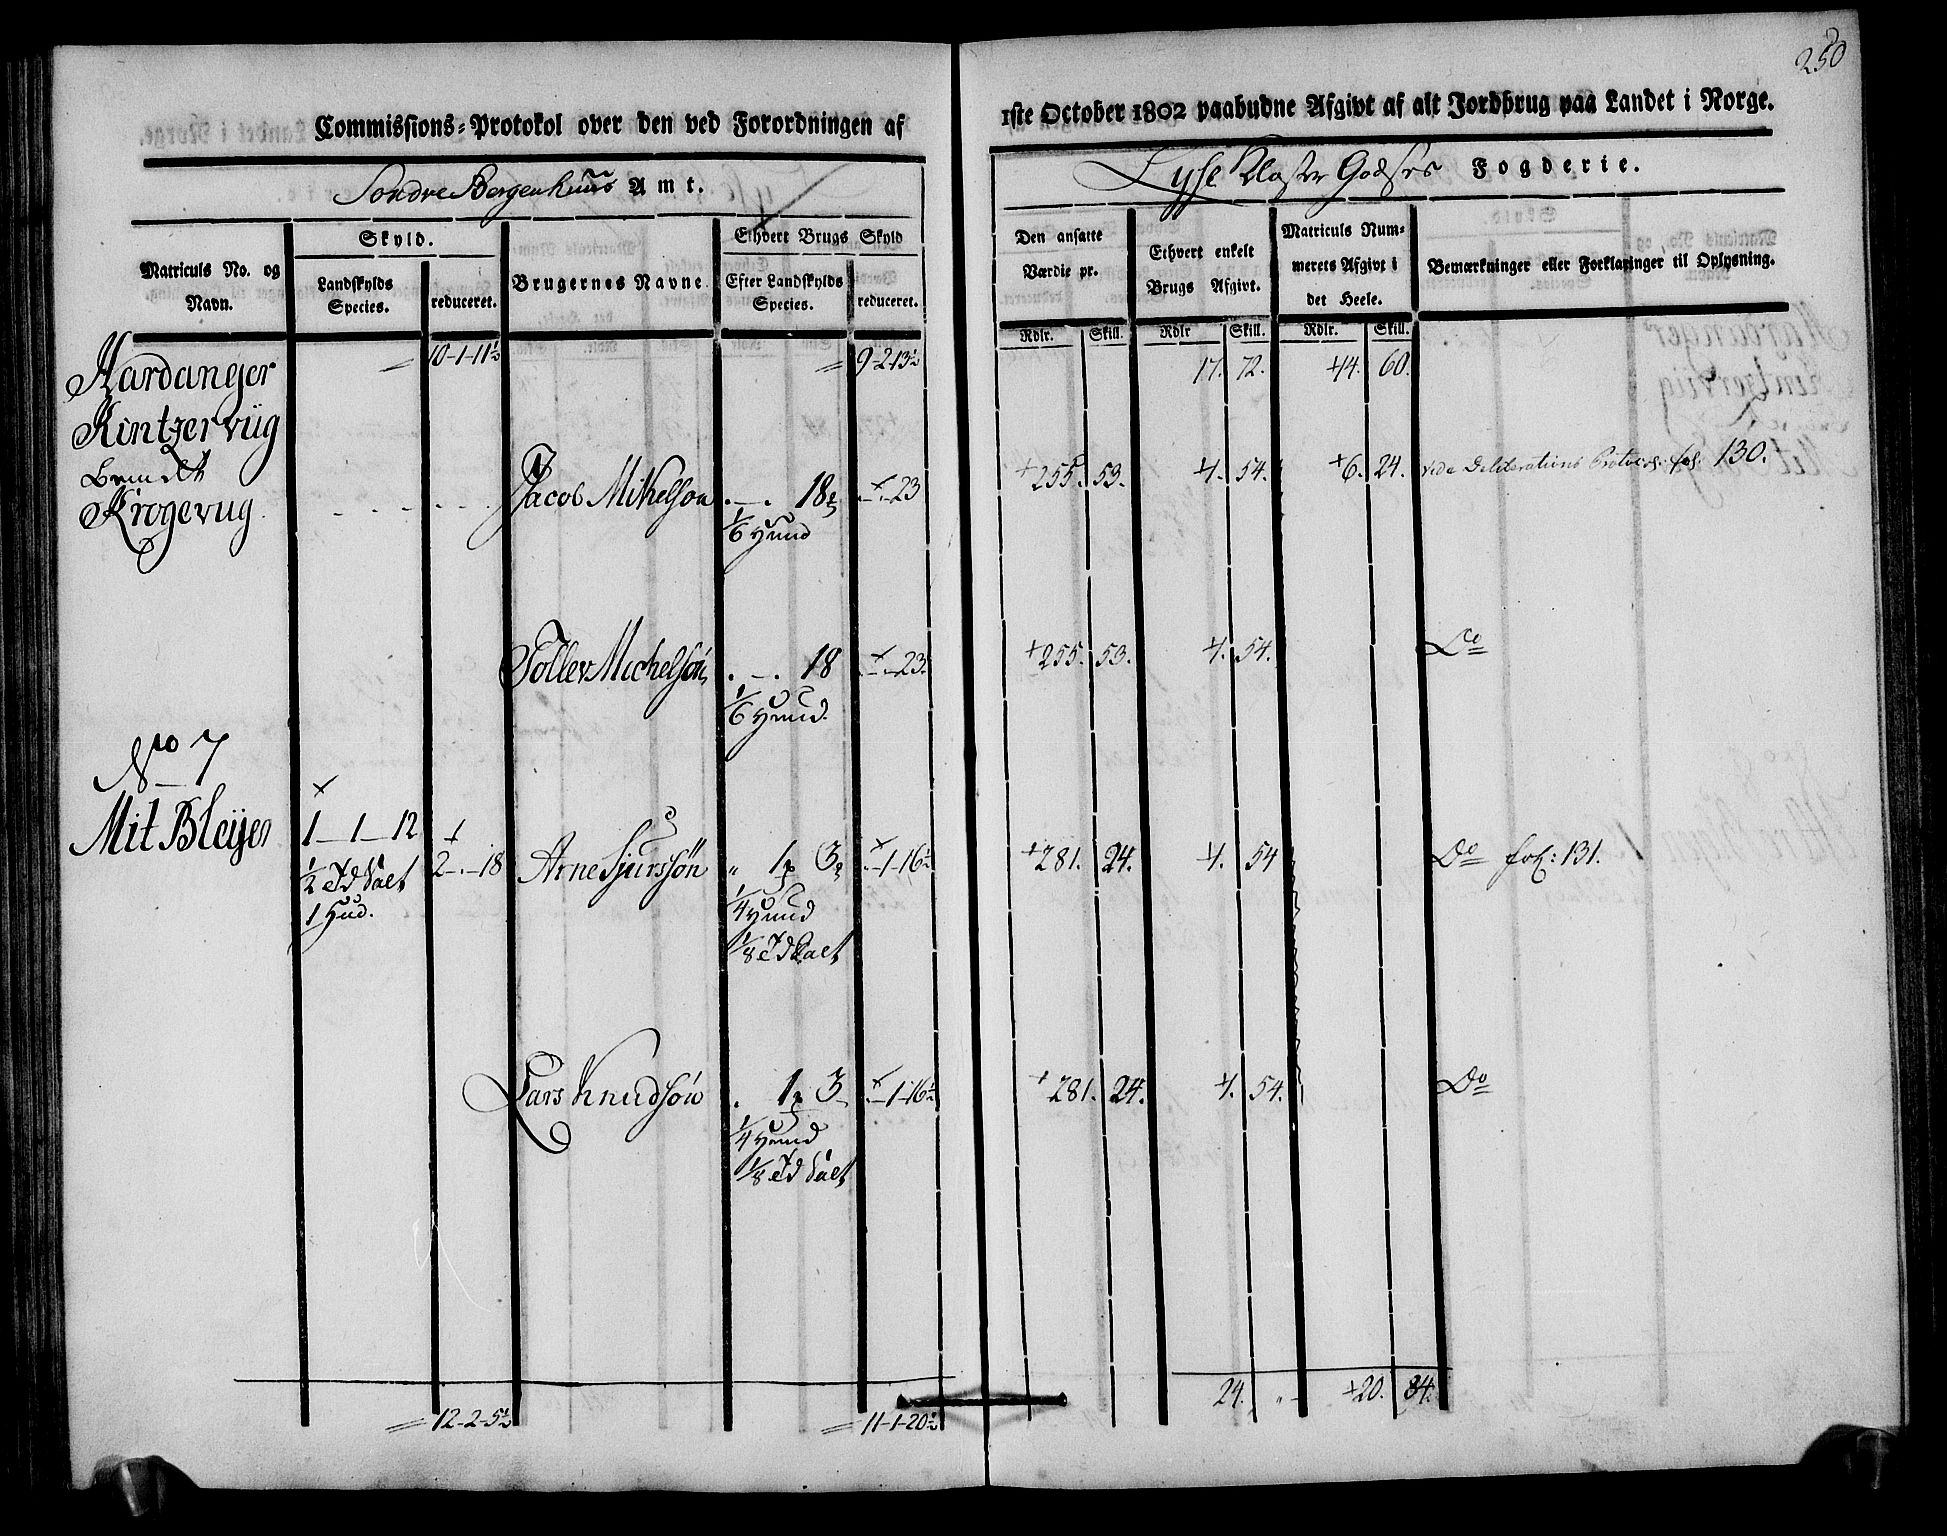 250
Commissions-Protokol over den ved Forordningen af 1ste October 1802 paabudne Afgivt af alt Jordbrug paa Landet i Norge.
Sondre Bergenhuus Amt.
Lyse Kloster Godses Fogderie.
Matriculs No. og Navn.
Skyld.
Landskylds Species.
reduceret.
Brugernes Navne
Ethvert Brugs Skyld
Efter Landskylds Species.
reduceret.
Den ansatte Værdie pr.
Ethvert enkelt Brugs Afgivt.
Matriculs Nummerets Afgivt i det Heele.
Bemærkninger eller Forklaringer til Oplysning.
Rdlr. Skill. Rdlr Skill. Rdlr. Skill.
Hardanger = 10-1-11½ = 9-2-13½ 17. 72. 44. 60.
Kintzerviig
Krogevug Jacob Mikelson . - . 18 . - . 23 255. 53. 4. 54. 6. 24. vide Deliberations Protocol: fol: 130.
1/6 Hund
Toller Michelsøn . - . 18 . - . 23. 255. 53. 4. 54. Do
1/6 Hund.
No 7
Mit Bleijen 1-1-12 2-.-18 Arne Sjurssøn " 1p 3 . -1-16½ 281. 24. 4. 54 Do fol: 131.
½ Td Salt ¼ Hund
1 Hud. ⅛ Td Salt
Lars Knudsøn . 1p 3 . -1-16½ 281. 24. 4. 54. Do
¼ Hund
⅛ Td Salt
24. " - 20. 34.
= 12-2-5½ = 11-1-20½